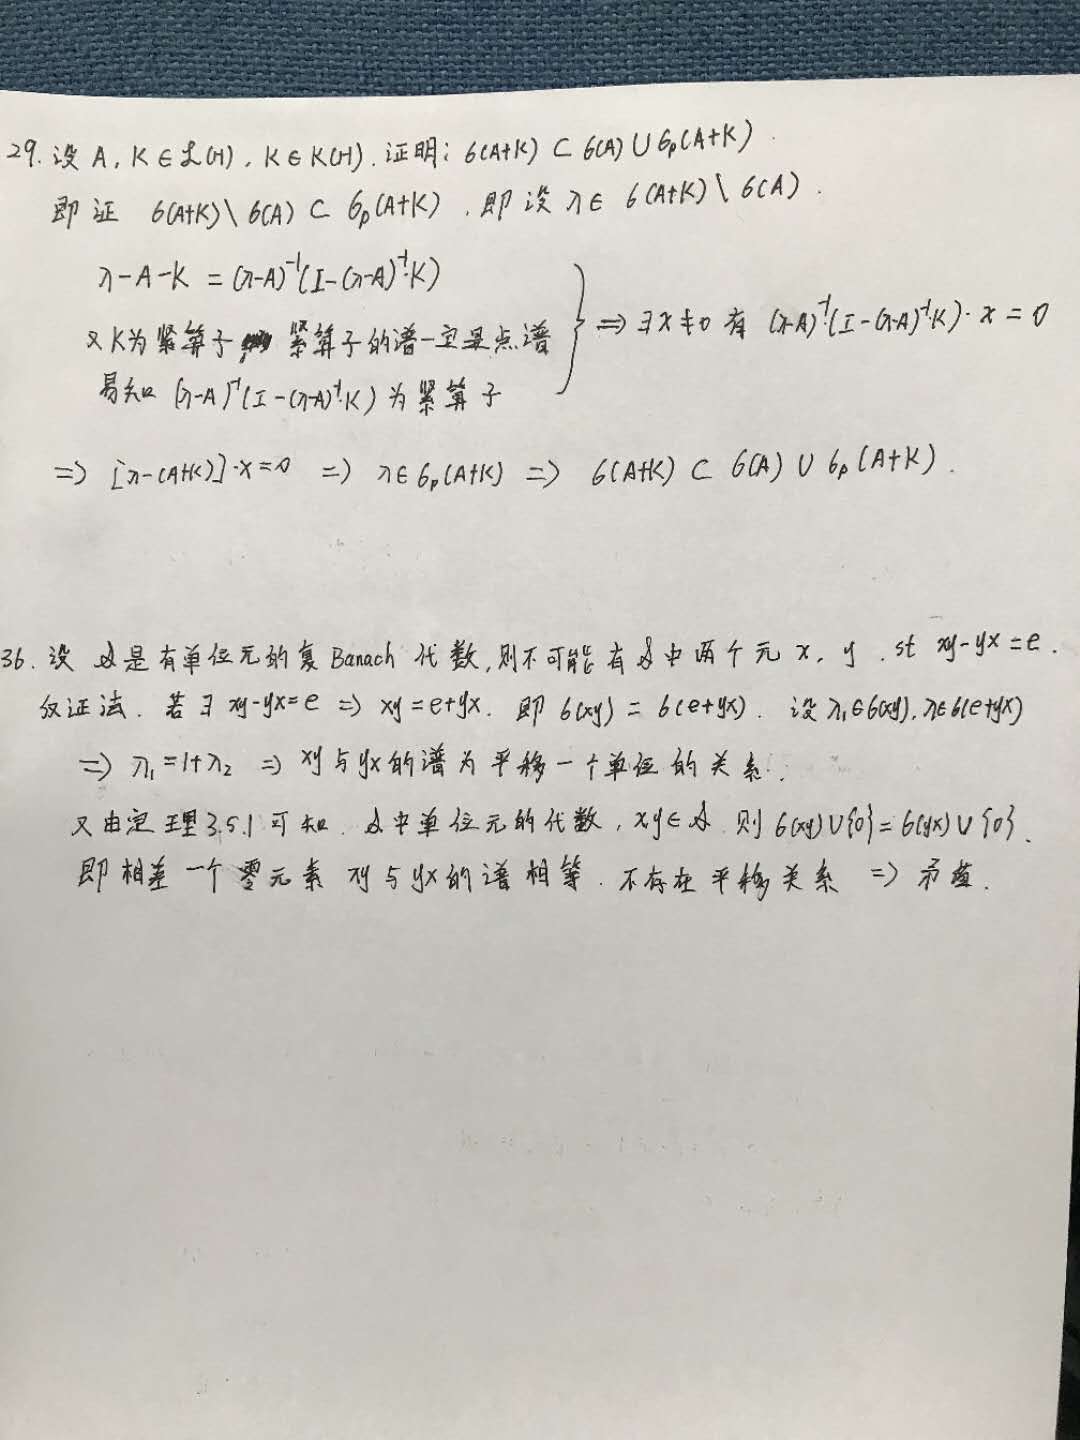 29. 设 A, K ∈ ℒ(H), K ∈ K(H). 证明: σ(A+K) ⊂ σ(A) ∪ σp(A+K).
即证 σ(A+K)\σ(A) ⊂ σp(A+K). 即设 λ ∈ σ(A+K)\σ(A).
λ-A-K = (λ-A)⁻¹(I-(λ-A)⁻¹·K)
又K为紧算子 紧算子的谱一定是点谱
易知 (λ-A)⁻¹(I-(λ-A)⁻¹·K) 为紧算子
} ⇒ ∃x≠0 有 (λ-A)⁻¹(I-(λ-A)⁻¹·K)·x = 0
⇒ [λ-(A+K)]·x=0 ⇒ λ∈σp(A+K) ⇒ σ(A+K) ⊂ σ(A) ∪ σp(A+K).
36. 设 𝒜 是有单位元的复Banach代数, 则不可能有𝒜中两个元 x, y. st xy-yx=e.
反证法. 若∃ xy-yx=e ⇒ xy=e+yx. 即 σ(xy) = σ(e+yx). 设 λ₁∈σ(xy), λ∈σ(e+yx)
⇒ λ₁=1+λ₂ ⇒ xy与yx的谱为平移一个单位的关系.
又由定理3.5.1可知. 𝒜中单位元的代数, x y∈𝒜. 则 σ(xy)∪{0}=σ(yx)∪{0}.
即相差一个零元素 xy与yx的谱相等. 不存在平移关系 ⇒ 矛盾.